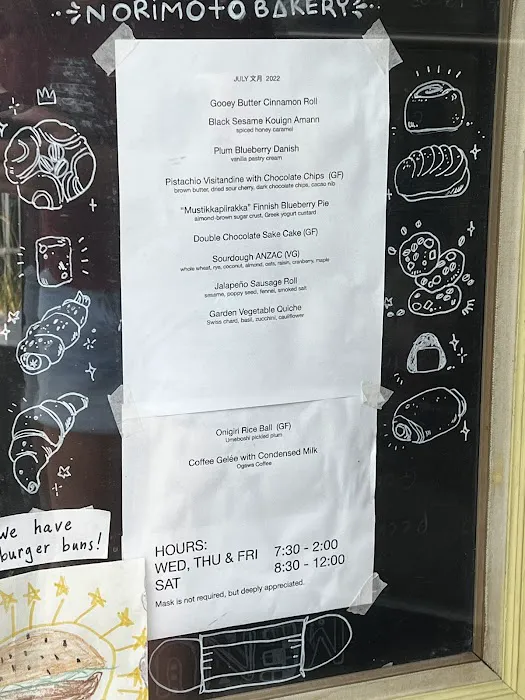 NORIMOTO BAKERY
JULY 文月 2022
Gooey Butter Cinnamon Roll
Black Sesame Kouign Amann
spiced honey caramel
Plum Blueberry Danish
vanilla pastry cream
Pistachio Visitandine with Chocolate Chips (GF)
brown butter, dried sour cherry, dark chocolate chips, cacao nib
"Mustikkapiirakka" Finnish Blueberry Pie
almond-brown sugar crust, Greek yogurt custard
Double Chocolate Sake Cake (GF)
Sourdough ANZAC (VG)
whole wheat, rye, coconut, almond, oats, raisin, cranberry, maple
Jalapeño Sausage Roll
sesame, poppy seed, fennel, smoked salt
Garden Vegetable Quiche
Swiss chard, basil, zucchini, cauliflower
Onigiri Rice Ball (GF)
Umeboshi pickled plum
Coffee Gelée with Condensed Milk
Ogawa Coffee
we have
burger buns!
HOURS:
WED, THU & FRI 7:30 - 2:00
SAT 8:30 - 12:00
Mask is not required, but deeply appreciated.